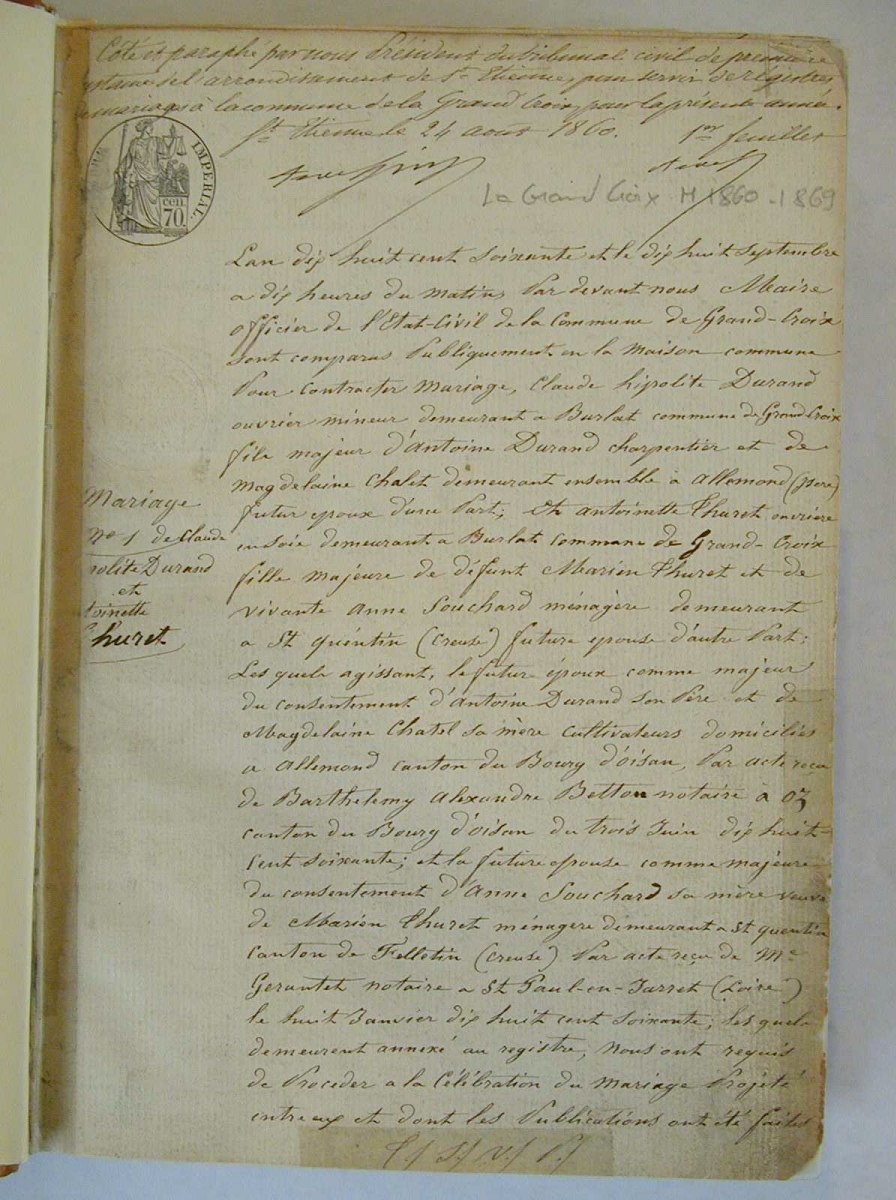 Coté et paraphé par nous Président du tribunal civil de première
instance de l'arrondissement de St Etienne, pour servir de registres
de mariages à la commune de la Grand Croix, pour la présente année.
St Etienne le 24 aout 1860. 1er feuillet
IMPERIAL.
cen
70.
La Grand Croix M 1860-1869
Lan dix huit cent soixante et le dix huit Septembre
a dix heures du matin, Par devant nous Maire
officier de l'Etat-Civil de la Commune de Grand-Croix
sont comparus Publiquement en la maison commune
Pour contracter Mariage, Claude hipolite Durand
ouvrier mineur demeurant a Burlat commune de Grand Croix
fils majeur d'Antoine Durand charpentier et de
Magdelaine Chalet demeurant ensemble à allemond (isere)
futur epoux d'une Part; Et antoinette Thuret ouvriere
en soie demeurant a Burlat commune de Grand-Croix
fille majeure de défunt Marien Thuret et de
vivante Anne Souchard ménagère demeurant
a St quentin (Creuse) future epouse d'autre Part;
Les quels agissant, le futur époux comme majeur
du consentement d'Antoine Durand son Père et de
Magdelaine Chatel sa mère cultivateurs domiciliés
a allemond canton du Bourg d'oisan, Par acte reçu
de Barthelemy Alexandre Bettou notaire à oz
canton du Bourg d'oisan du trois Juin dix huit
cent soixante; et la future epouse comme majeure
du consentement d'Anne Souchard sa mère veuve
de Marien Thuret ménagere demeurant a St quentin
canton de Felletin (Creuse) Par acte reçu de Me
Gerantet notaire a St Paul-en-Jarret (Loire)
le huit Janvier dix huit cent soixante; les quels
demeurent annexé au registre, Nous ont requis
de Proceder a la Célébration du Mariage Projeté
entre eux et dont les Publications ont été faites
T/ S/ V/ P/
Mariage
No 1 de Claude
polite Durand
et
toinette
Thuret